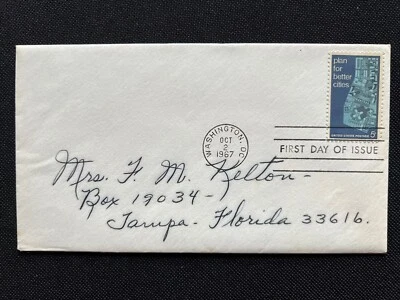 plan
for
better
cities
UNITED STATES POSTAGE 5c
WASHINGTON, DC
OCT
2
1967
FIRST DAY OF ISSUE
Mrs. F. M. Kelton-
Box 19034-
Tampa-Florida 33616.